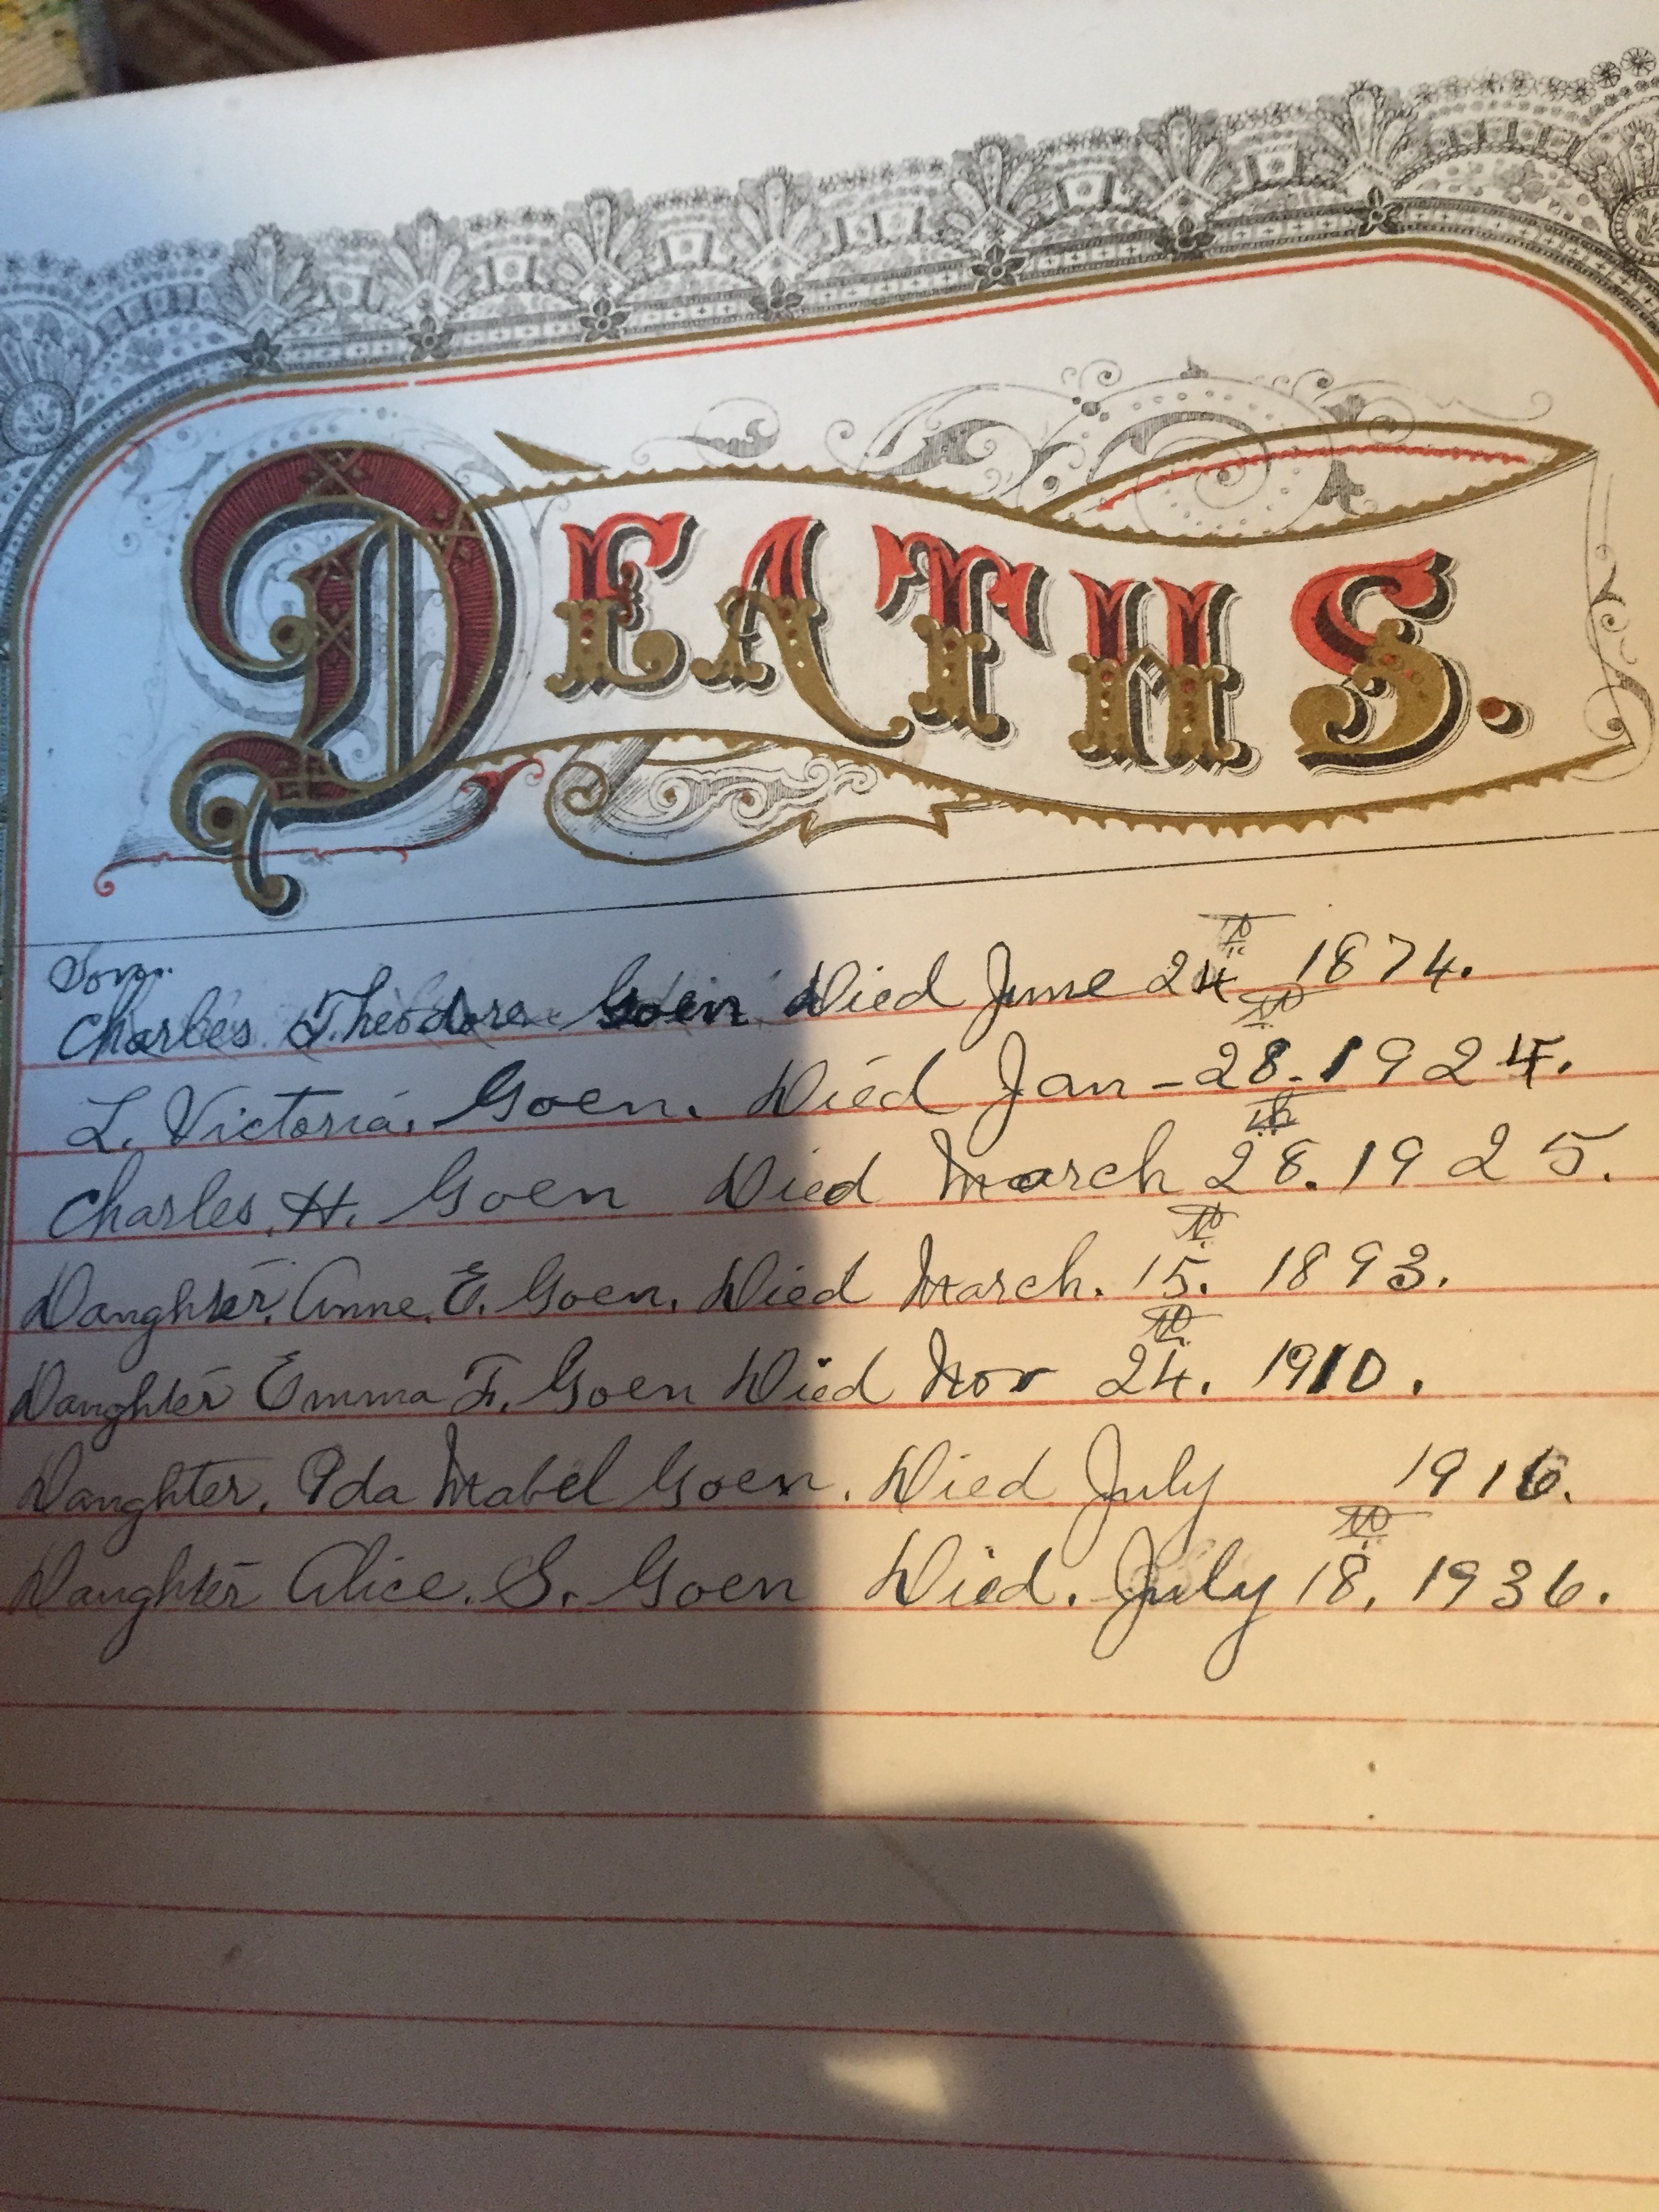 DEATHS.
Son.
Charles Theodore Goen Died June 24th 1874.
L. Victoria. Goen. Died Jan - 28th. 1924.
Charles. H. Goen Died March 28th. 1925.
Daughter. Anne. E. Goen. Died March. 15th. 1893.
Daughter Emma F. Goen Died Nov 24th. 1910.
Daughter. Ida Mabel Goen. Died July 1916.
Daughter Alice. S. Goen Died. July 18th, 1936.